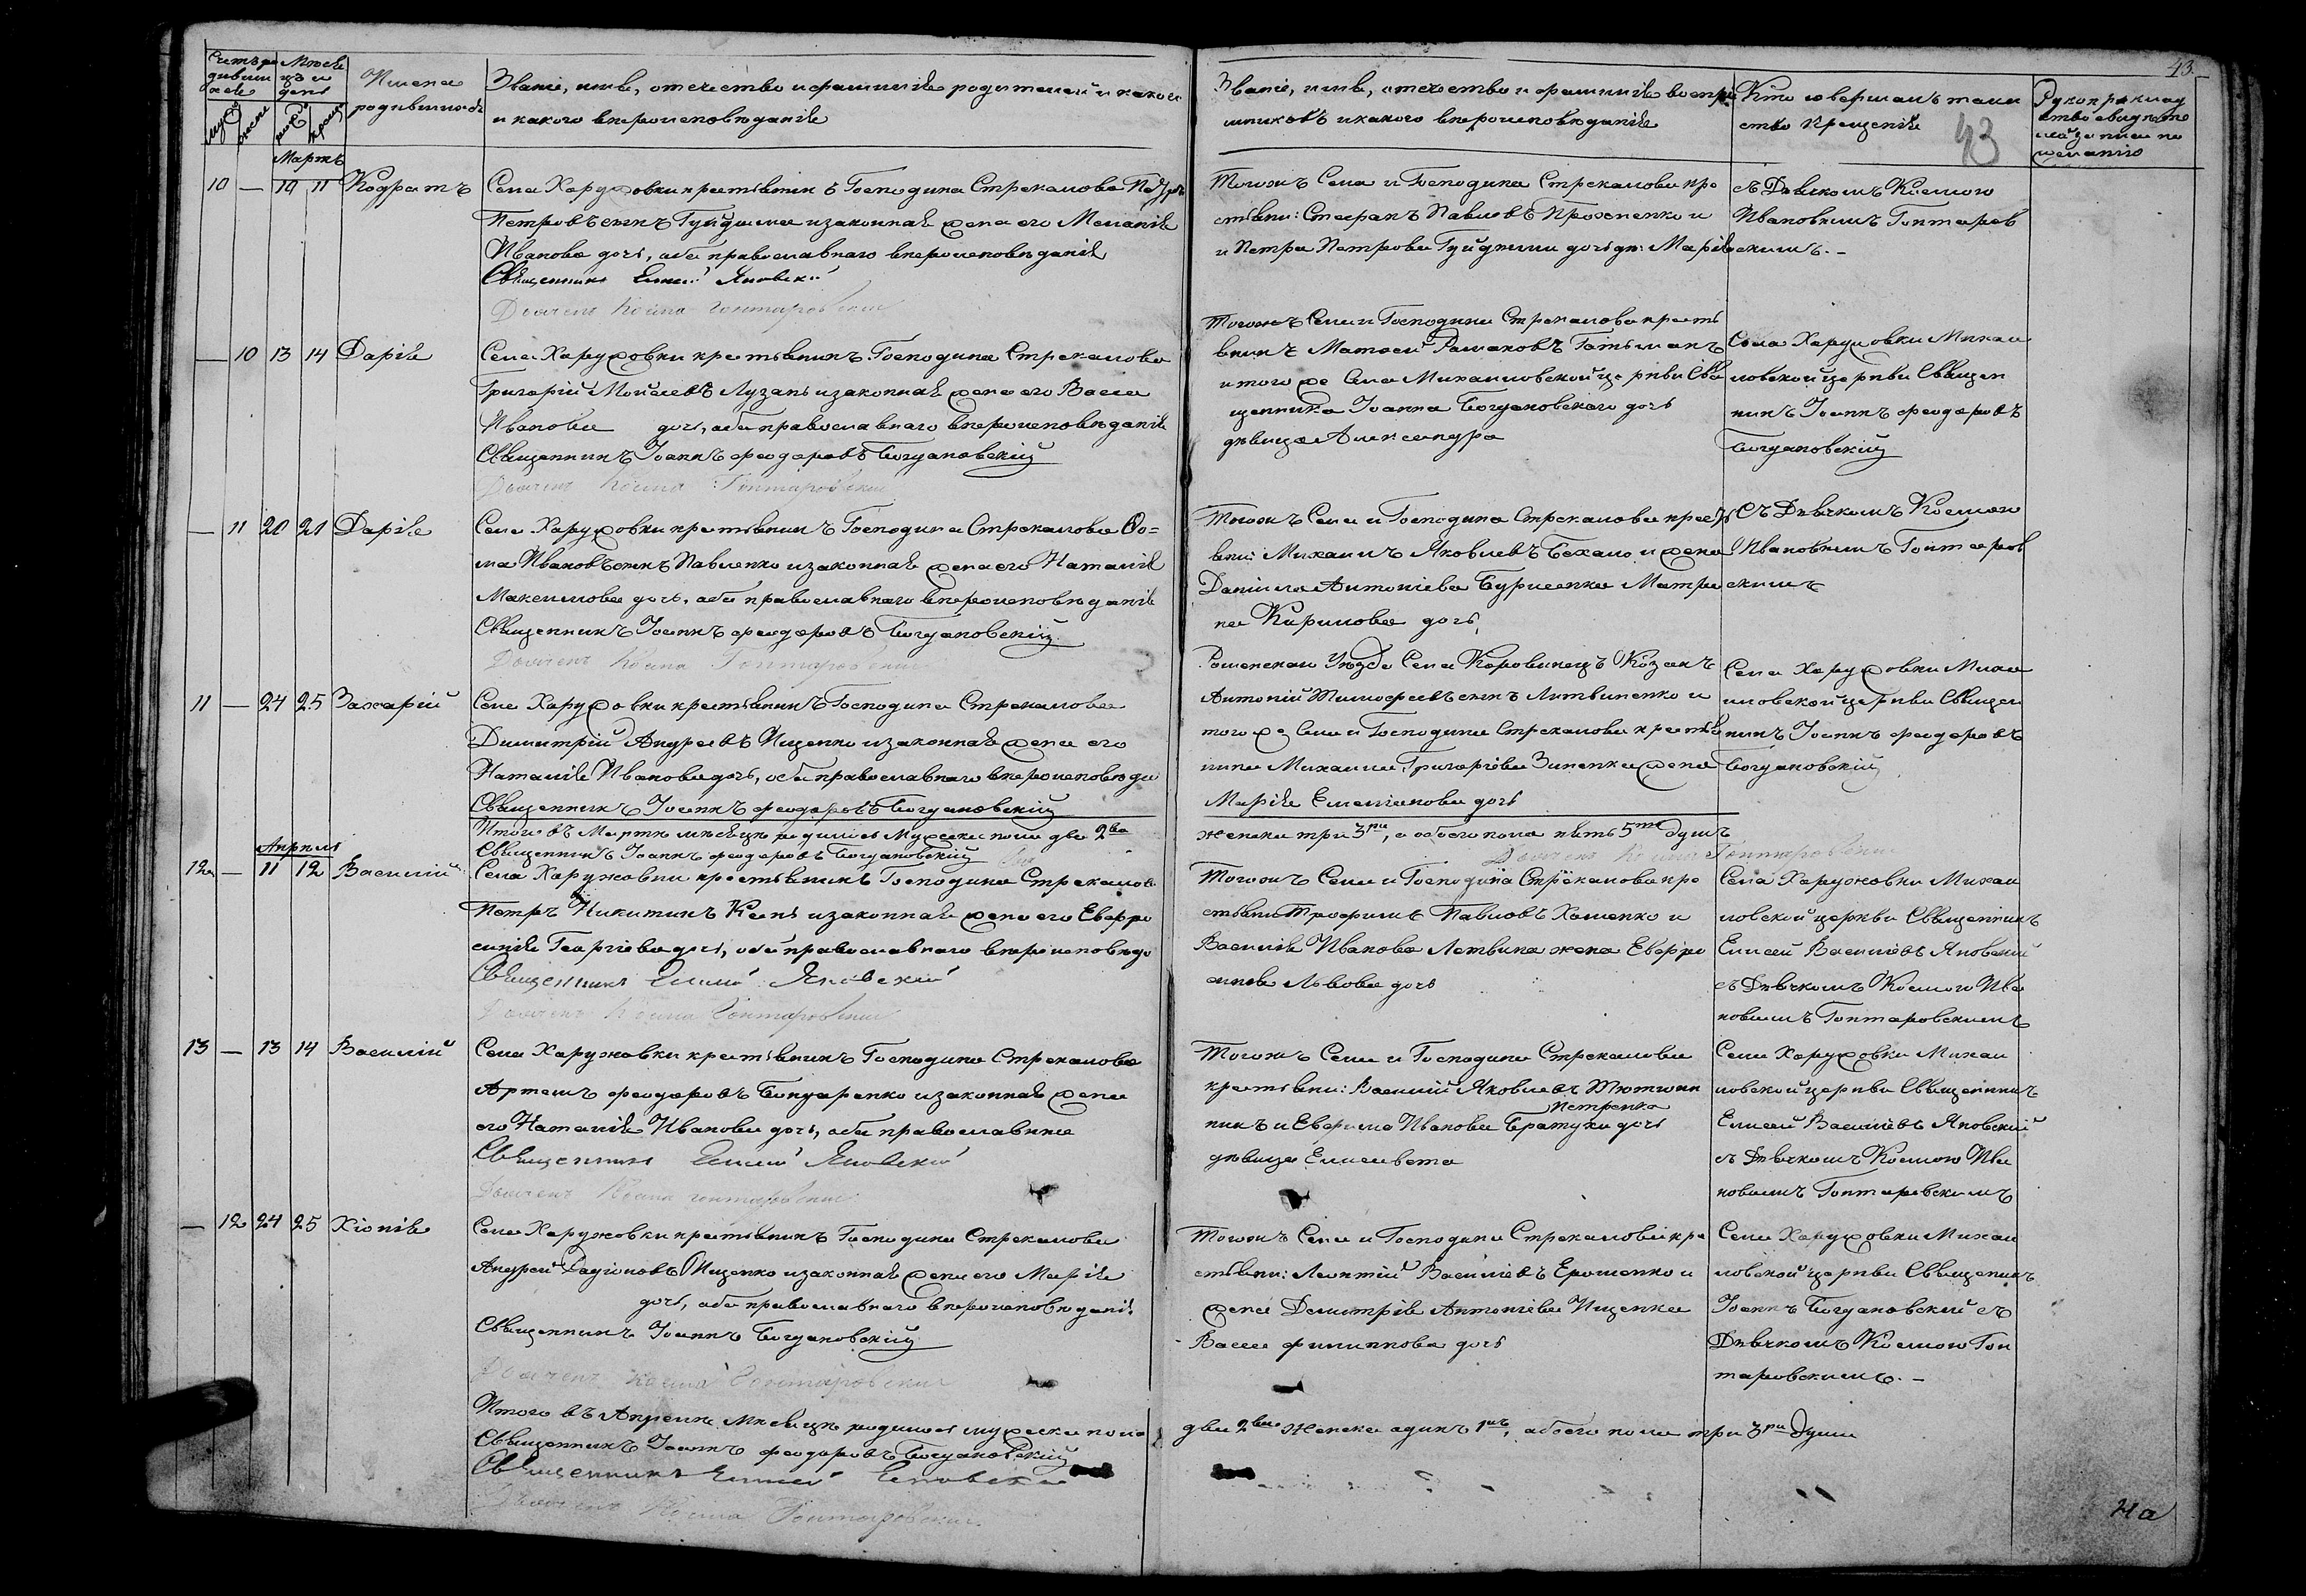 43.
43
Счетъ ро Мѣся
дивши цъ и
хся день
Имена
родившихся
Званіе, имя, отечество и фамилія родителей и какого
и какого вѣроисповѣданія
Званіе, имя, отечество и фамилія воспріе
мниковъ и какого вѣроисповѣданія
Кто совершалъ таин
ство крещенія
Рукоприклад
ство свидѣте
лей записи по
желанію
Мартъ
10 — 10 11 Кодратъ
Села Харужовки крестьянинъ Господина Стрекалова
Петровъ сынъ Гуйда и законная жена его Меланія
Иванова дочь, оба православнаго вѣроисповѣданія
Священникъ Елисей Яновскій
Дьячекъ Косма Гонтаровскій
Тогожъ Села и Господина Стрекалова кре
стьяне: Стефанъ Павловъ Прохпенко и
и Петра Петрова дочь дѣ: Марія
съ Дьячкомъ Космою
Ивановимъ Гонтаров
скимъ. –
— 10 13 14 Дарія
Села Харужовки крестьянинъ Господина Стрекалова
Григорій Мойсеевъ Лузанъ и законная жена его Васса
Иванова дочь, оба православнаго вѣроисповѣданія
Священникъ Іоаннъ Феодоровъ Богдановскій
Дьячекъ Косма Гонтаровскій
Тогожъ Села и Господина Стрекалова кресть
янинъ Матфей Романовъ Гатьманъ
и того же Села Михаиловской церкви Свя
щенника Іоанна Богдановскаго дочь
дѣвица Александра
Села Харужовки Михаи
ловской церкви Священ
никъ Іоаннъ Феодоровъ
Богдановскій
— 11 20 21 Дарія
Села Харужовки крестьянинъ Господина Стрекалова Ѳо=
ма Ивановъ сынъ Павленко и законная жена его Наталія
Максимова дочь, оба православнаго вѣроисповѣданія
Священникъ Іоаннъ Феодоровъ Богдановскій
Дьячекъ Косма Гонтаровскій
Тогожъ Села и Господина Стрекалова кресть
яне: Михаилъ Яковлевъ Бехало и жена
Даніила Антоніева Бурисенка Матро
на Кирилова дочь
Съ Дьячкомъ Космою
Ивановимъ Гонтаров
скимъ
11 — 24 25 Захарій
Села Харужовки крестьянинъ Господина Стрекалова
Димитрій Андреевъ Ищенко и законная жена его
Наталія Иванова дочь, оба православнаго вѣроисповѣда
Священникъ Іоаннъ Феодоровъ Богдановскій
Роменскаго Уѣзда Села Коровинецъ Козакъ
Антоній Тимофеевъ сынъ Литвиненко и
того же Села и Господина Стрекалова крестья
нина Михаила Григоріева Зиненка жена
Марія Емеліанова дочь
Села Харужовки Михаи
ловской церкви Священ
никъ Іоаннъ Феодоровъ
Богдановскій
Итого въ Мартѣ мѣсяцѣ родилось Мужеска пола два 2ва
женска три 3ри, а обоего пола пять 5ть душъ
Священникъ Іоаннъ Феодоровъ Богдановскій
Дьячекъ Косма Гонтаровскій
Апрель
12 — 11 12 Василій
Села Харужовки крестьянинъ Господина Стрекалова
Петръ Никитинъ и законная жена его Евфро
синія Георгіева дочь, оба православнаго вѣроисповѣда
Священникъ Елисей Яновскій
Дьячекъ Косма Гонтаровскій
Тогожъ Села и Господина Стрекалова кре
стьяне Трофимъ Павловъ Хоменко и
Василія Иванова Летвина жена Евфро
синія Львова дочь
Села Харужовки Михаи
ловской церкви Священникъ
Елисей Василіевъ Яновскій
съ Дьячкомъ Космою Ива
новимъ Гонтаровскимъ
13 — 13 14 Василій
Села Харужовки крестьянинъ Господина Стрекалова
Артемъ Феодоровъ Бондаренко и законная жена
его Наталія Иванова дочь, оба православние
Священникъ Елисей Яновскій
Дьячекъ Косма Гонтаровскій
Тогожъ Села и Господина Стрекалова
крестьяне: Василій Яковлевъ Тютюн
Петренка
никъ и Ефрема Иванова Братухи дочь
дѣвица Елисавета
Села Харужовки Михаи
ловской церкви Священникъ
Елисей Василіевъ Яновскій
съ Дьячкомъ Космою Ива
новимъ Гонтаровскимъ
— 12 24 25 Хіонія
Села Харужовки крестьянинъ Господина Стрекалова
Андрей Радіоновъ Ищенко и законная жена его Марія
дочь, оба православнаго вѣроисповѣданія
Священникъ Іоаннъ Богдановскій
Дьячекъ Косма Гонтаровскій
Тогожъ Села и Господина Стрекалова кре
стьяне: Леонтій Василіевъ Ерошенко и
жена Димитрія Антоніева Ищенка
Васса Филиппова дочь
Села Харужовки Михаи
ловской церкви Священикъ
Іоаннъ Богдановскій съ
Дьячкомъ Космою Гон
таровскимъ. –
Итого въ Апрелѣ мѣсяцѣ родилось мужеска пола
два 2ва женска одинъ 1нъ, обоего пола три 3ри души
Священникъ Іоаннъ Феодоровъ Богдановскій
Священникъ Елисей Яновскій
Дьячекъ Косма Гонтаровскій
На